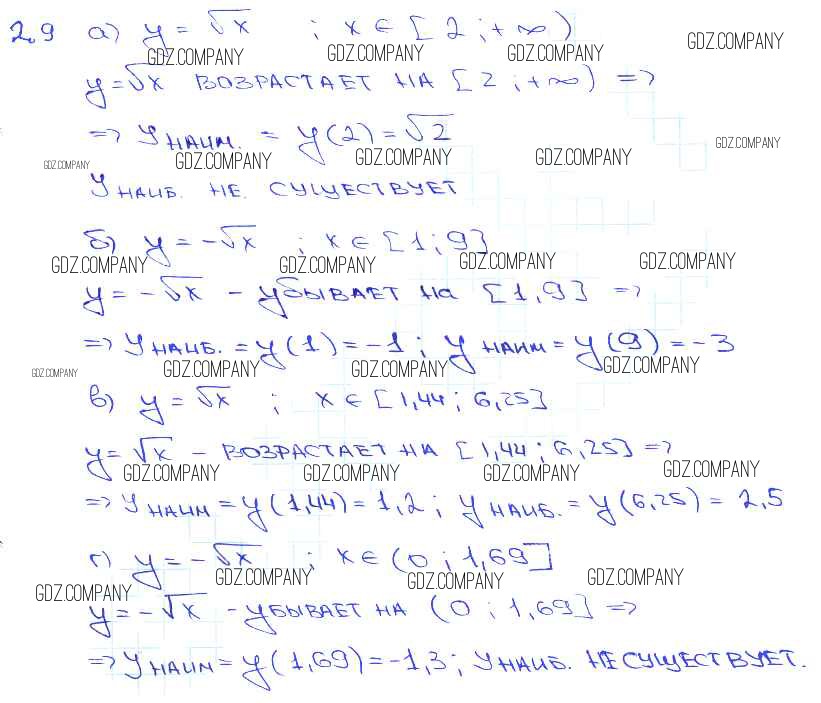 2.9 а) y = √x ; x ∈ [2 ; +∞)
GDZ.COMPANY GDZ.COMPANY GDZ.COMPANY GDZ.COMPANY
y = √x возрастает на [2 ; +∞) =>
=> y наим. = y(2) = √2
GDZ.COMPANY GDZ.COMPANY GDZ.COMPANY GDZ.COMPANY GDZ.COMPANY
y наиб. не существует
б) y = -√x ; x ∈ [1 ; 9]
GDZ.COMPANY GDZ.COMPANY GDZ.COMPANY GDZ.COMPANY
y = -√x - убывает на [1 ; 9] =>
=> y наиб. = y(1) = -1 ; y наим = y(9) = -3
GDZ.COMPANY GDZ.COMPANY GDZ.COMPANY GDZ.COMPANY
в) y = √x ; x ∈ [1,44 ; 6,25]
y = √x - возрастает на [1,44 ; 6,25] =>
GDZ.COMPANY GDZ.COMPANY GDZ.COMPANY GDZ.COMPANY
=> y наим = y(1,44) = 1,2 ; y наиб. = y(6,25) = 2,5
г) y = -√x ; x ∈ (0 ; 1,69]
GDZ.COMPANY GDZ.COMPANY GDZ.COMPANY GDZ.COMPANY
y = -√x - убывает на (0 ; 1,69] =>
=> y наим = y(1,69) = -1,3 ; y наиб. не существует.